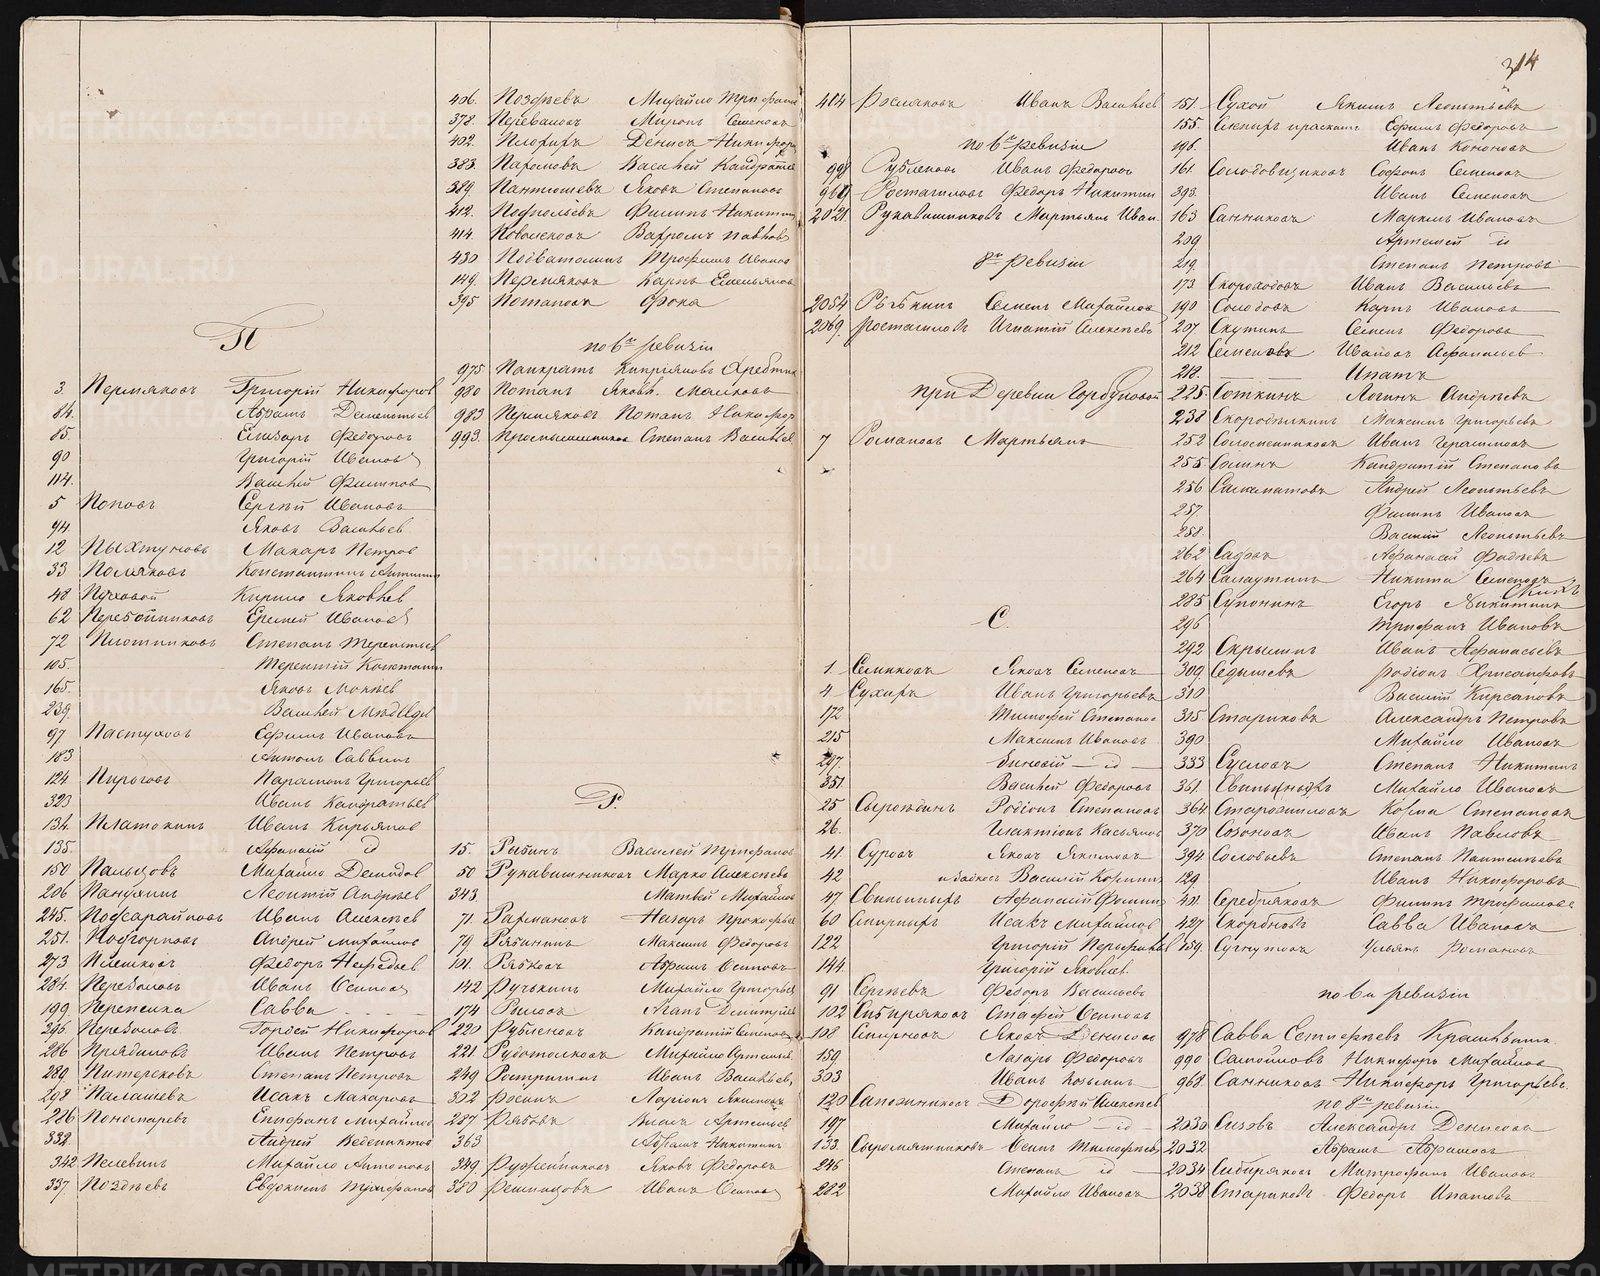 314
П
3 Пермяковъ Григорій Никифоров
84. Абрамъ Дементьев
85. Елизаръ Федоровъ
90 Григорій Ивановъ
114. Василей Филипов
5 Поповъ Сергѣй Ивановъ
94 Яковъ Васильев
12 Пыхтуновъ Макаръ Петров
33 Поляковъ Константинъ
48 Пуховой Кирило Яковлев
62 Перебойниковъ Еремей Ивановъ
72 Плотниковъ Степанъ Терентьев
105. Терентій
165. Яковъ
239. Василей
97 Пастуховъ Ефимъ Ивановъ
183 Антонъ Саввинъ
124 Пироговъ Парамонъ Григорьев
323 Иванъ Кандратьев
134. Платокинъ Иванъ Кирьянов
135 Афанасій id
150 Пальцовъ Михайло Демидов
206 Панухинъ Леонтій Андреев
245. Подсарайновъ Иванъ Алексѣев
251. Подгорновъ Андрей Михайлов
273 Плешковъ Федоръ Нефедьев
284. Иванъ Осиповъ
199 Перепелка Савва
296. Гордей Никифоров
286 Прядиловъ Иванъ Петровъ
289 Питерсковъ Степанъ Петровъ
298 Палашевъ Исакъ Макаровъ
226 Пономаревъ Епифанъ Михайлов
332. Андрей
342 Пелевинъ Михайло Антоновъ
337 Поздѣевъ Евдокимъ Трифанов
406. Поздѣевъ Михайло
378. Переваловъ Миронъ Семеновъ
402. Денисъ Никифор
383. Паромовъ Василей Кандрать
389. Пантюшевъ Яковъ Степановъ
412. Филипъ Никитинъ
414. Поволековъ Вахромъ Павлов
430 Подватолинъ Трофимъ Иванов
149. Пермяковъ Карпъ Емельянов
395 Потаповъ Фока
по 6й ревизіи
975 Панкратъ Кипріяновъ
980 Потапъ Яковл.
983 Пермяковъ Потапъ Никифор
993. Промышленников Степанъ Васильев
Р
15. Рябинъ Василей Трифанов
50 Рукавишниковъ Марко Алексѣев
343. Матвей Михайлов
71. Рахмановъ Назаръ Прокофьев
79. Рябининъ Максимъ Федоровъ
101. Рябковъ Абрамъ Осиповъ
142 Ручькинъ Михайло Григорьев
174 Агапъ Дмитріев
220 Рубленовъ Кандратій
221. Рудотолковъ Михайло
249 Ростригинъ Иванъ Васильев
302 Росинъ Ларіонъ Якимовъ
287 Рябовъ Власъ Артемьев
363 Абрамъ Никитинъ
349 Ружейниковъ Яковъ Федоровъ
380 Решетовъ Иванъ Осипов
484 Росляковъ Иванъ Васильев
по 6й ревизіи
998 Рубленовъ Иванъ Федоров
960 Ростагиловъ Федоръ Никитин
2021 Рукавишниковъ Мартьянъ Иван
8й ревизіи
2054 Рѣпкинъ Семенъ Михайлов
2069. Ростагиловъ Игнатій Алексѣев
при Деревни Горбуновой
7 Романовъ Мартьянъ
С.
1. Семиковъ Яковъ Семеновъ
4 Сухихъ Иванъ Григорьевъ
172 Тимофей Степанов
215 Максимъ Ивановъ
297. Зиновій id
351. Василей Федоровъ
25 Родіонъ Степановъ
26. Галактіонъ Касьянов
41. Суровъ Яковъ Якимовъ
42 Василій
47. Свиньиныхъ Афанасій Фомин
60 Спириныхъ Исакъ Михайлов
122 Григорій
144 Григорій Яковлев
91 Сергѣевъ Федоръ Васильевъ
102 Сибиряковъ Осиповъ
108 Смирновъ Яковъ Денисовъ
159. Лазарь Федоровъ
303 Иванъ Козьминъ
120 Сапожниковъ Дорофѣй Алексѣев
197 Михайло id
133. Сыромятниковъ Осипъ Тимофеев
246 Степанъ id
282 Михайло Ивановъ
151. Сухой Якимъ Леонтьевъ
155. Ефимъ Федоровъ
196. Иванъ Кононовъ
161. Солодовщиковъ Софонъ Семеновъ
393. Иванъ Семеновъ
163 Санниковъ Маркелъ Ивановъ
209 Артемей id
219. Степанъ Петровъ
173 Скороходовъ Иванъ Васильевъ
190 Солодовъ Карпъ Ивановъ
207 Скутинъ Семенъ Федоровъ
212 Семеновъ Афанасьев
218. Ипатъ
225. Соткинъ Логинъ Андреевъ
238 Максимъ Григорьевъ
252 Соломенниковъ Иванъ Герасимовъ
255. Соминъ Кандратій Степановъ
256 Саламатовъ Андрей Леонтьевъ
257. Филипъ Ивановъ
258. Василій Леонтьевъ
262 Афанасій Фадѣевъ
264 Салаутинъ Никита Семеновъ
285 Супонинъ Егоръ Никитинъ
296 Трифанъ Ивановъ
292 Скрылинъ Иванъ Афанасьевъ
309. Седышевъ Родіонъ Хрисанфовъ
310 Василій Кирсановъ
315 Стариковъ Александръ Петровъ
390 Михайло Ивановъ
333 Сусловъ Степанъ Никитинъ
361. Михайло Ивановъ
364 Старожиловъ Козма Степановъ
370 Созоновъ Иванъ Павловъ
394 Соловьевъ Степанъ Пантелѣевъ
129 Иванъ Никифоровъ
401. Серебряковъ Филипъ Трифановъ
427 Скорбновъ Савва Ивановъ
159. Сугнутовъ Ульянъ Романовъ
по 6й ревизіи
978 Савва
990 Самойловъ Никифоръ Михайлов
968. Санниковъ Никифоръ Григорьевъ
по 8й ревизіи
2030 Сизовъ Александръ Денисовъ
2032 Абрамъ Абрамовъ
2034 Сибиряковъ Митрофанъ Ивановъ
2038 Стариковъ Федоръ Ипатовъ
METRIKI.GASO-URAL.RU